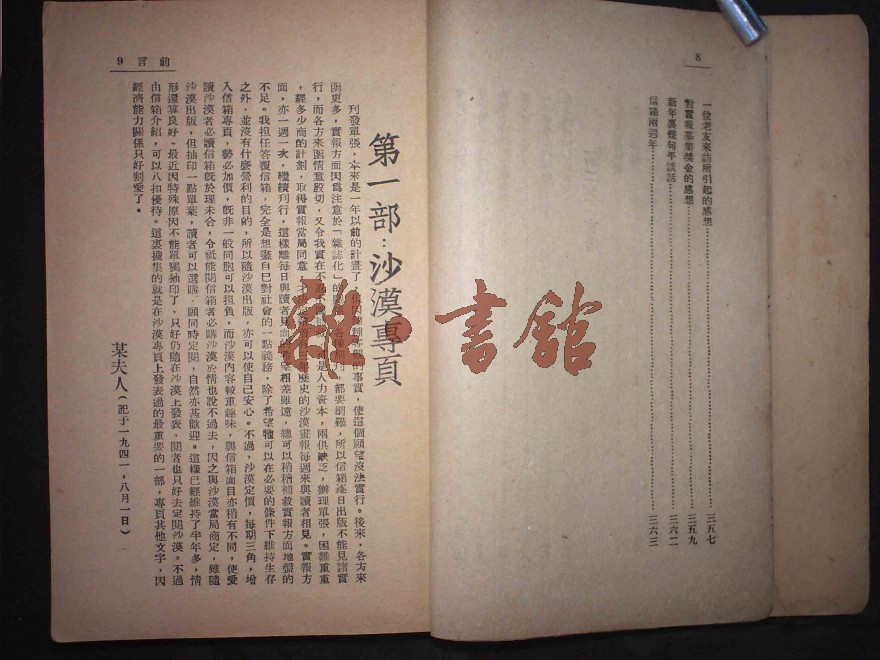 8
一位老友來訪所引起的感想 三五七
對實報募集獎金的感想 三五九
新年裏幾句平談話 三六二
信箱兩週年 三六三
前言 9
第一部：沙漠專頁
刊發單張，本來是一年以前的計畫了，使這個願望沒法實行。後來，各方來
函更多，實報方面因爲注意於「雜誌化」的都要調難，所以信箱逐日出版不能見諸實
行，而各方來函情意殷切，又令我實在不是人力資本，兩俱缺乏，辦理單張，困難重重
，經多少商的計劃，取得實報當局同意，年歷史的沙漠畫報每週來與讀者相見。實報方
面，亦一週一次，繼續刊行，這樣雖每日與讀者見面的希望相差雖遠，總可以稍稍補救實報方面地盤的
不足。我担任答覆信箱，完全是想盡自己對社會的一點義務，除了希望牠可以在必要的條件下維持生存
之外，並沒有什麼營利的目的，所以隨沙漠出版，亦可以使自己安心。不過，沙漠定價，每期三角，增
入信箱專頁，勢必加價，旣非一般同胞可以担負，而沙漠內容較重趣味，與信箱面目亦稍有不同，使愛
讀沙漠者必讀信箱旣於理未合，令祗能閱信箱者必購沙漠於情也說不過去，因之與沙漠當局商定，雖隨
沙漠出版，但抽印一點單葉，讀者可以選購，願同時定閱，自然亦甚歡迎。這樣已經維持了半年多，情
形還算良好。最近因特殊原因不能單獨抽印了，只好仍隨在沙漠上發表，閱者也只好去定閱沙漠。不過
由信箱介紹，可以八扣優待。這裏搜集的就是在沙漠專頁上發表過的最重要的一部，專頁其他文字，因
經濟能力關係只好割愛了。
某夫人（記于一九四一，八月一日）
書館